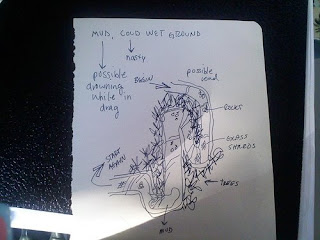 MUD, COLD WET GROUND
nasty
possible
drowning
while in
drag
BEGIN
possible
ROCKS
GLASS
SHARDS
START
AGAIN
TREES
MUD